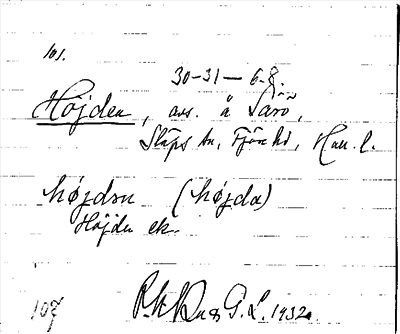 101.
30-31 — 6.8.
Höjden, avs. å Särö,
Släps sn, Fjäre hd, Hall. l.
højdən (højda)
Höjden ek.
G. L. 1932.
107